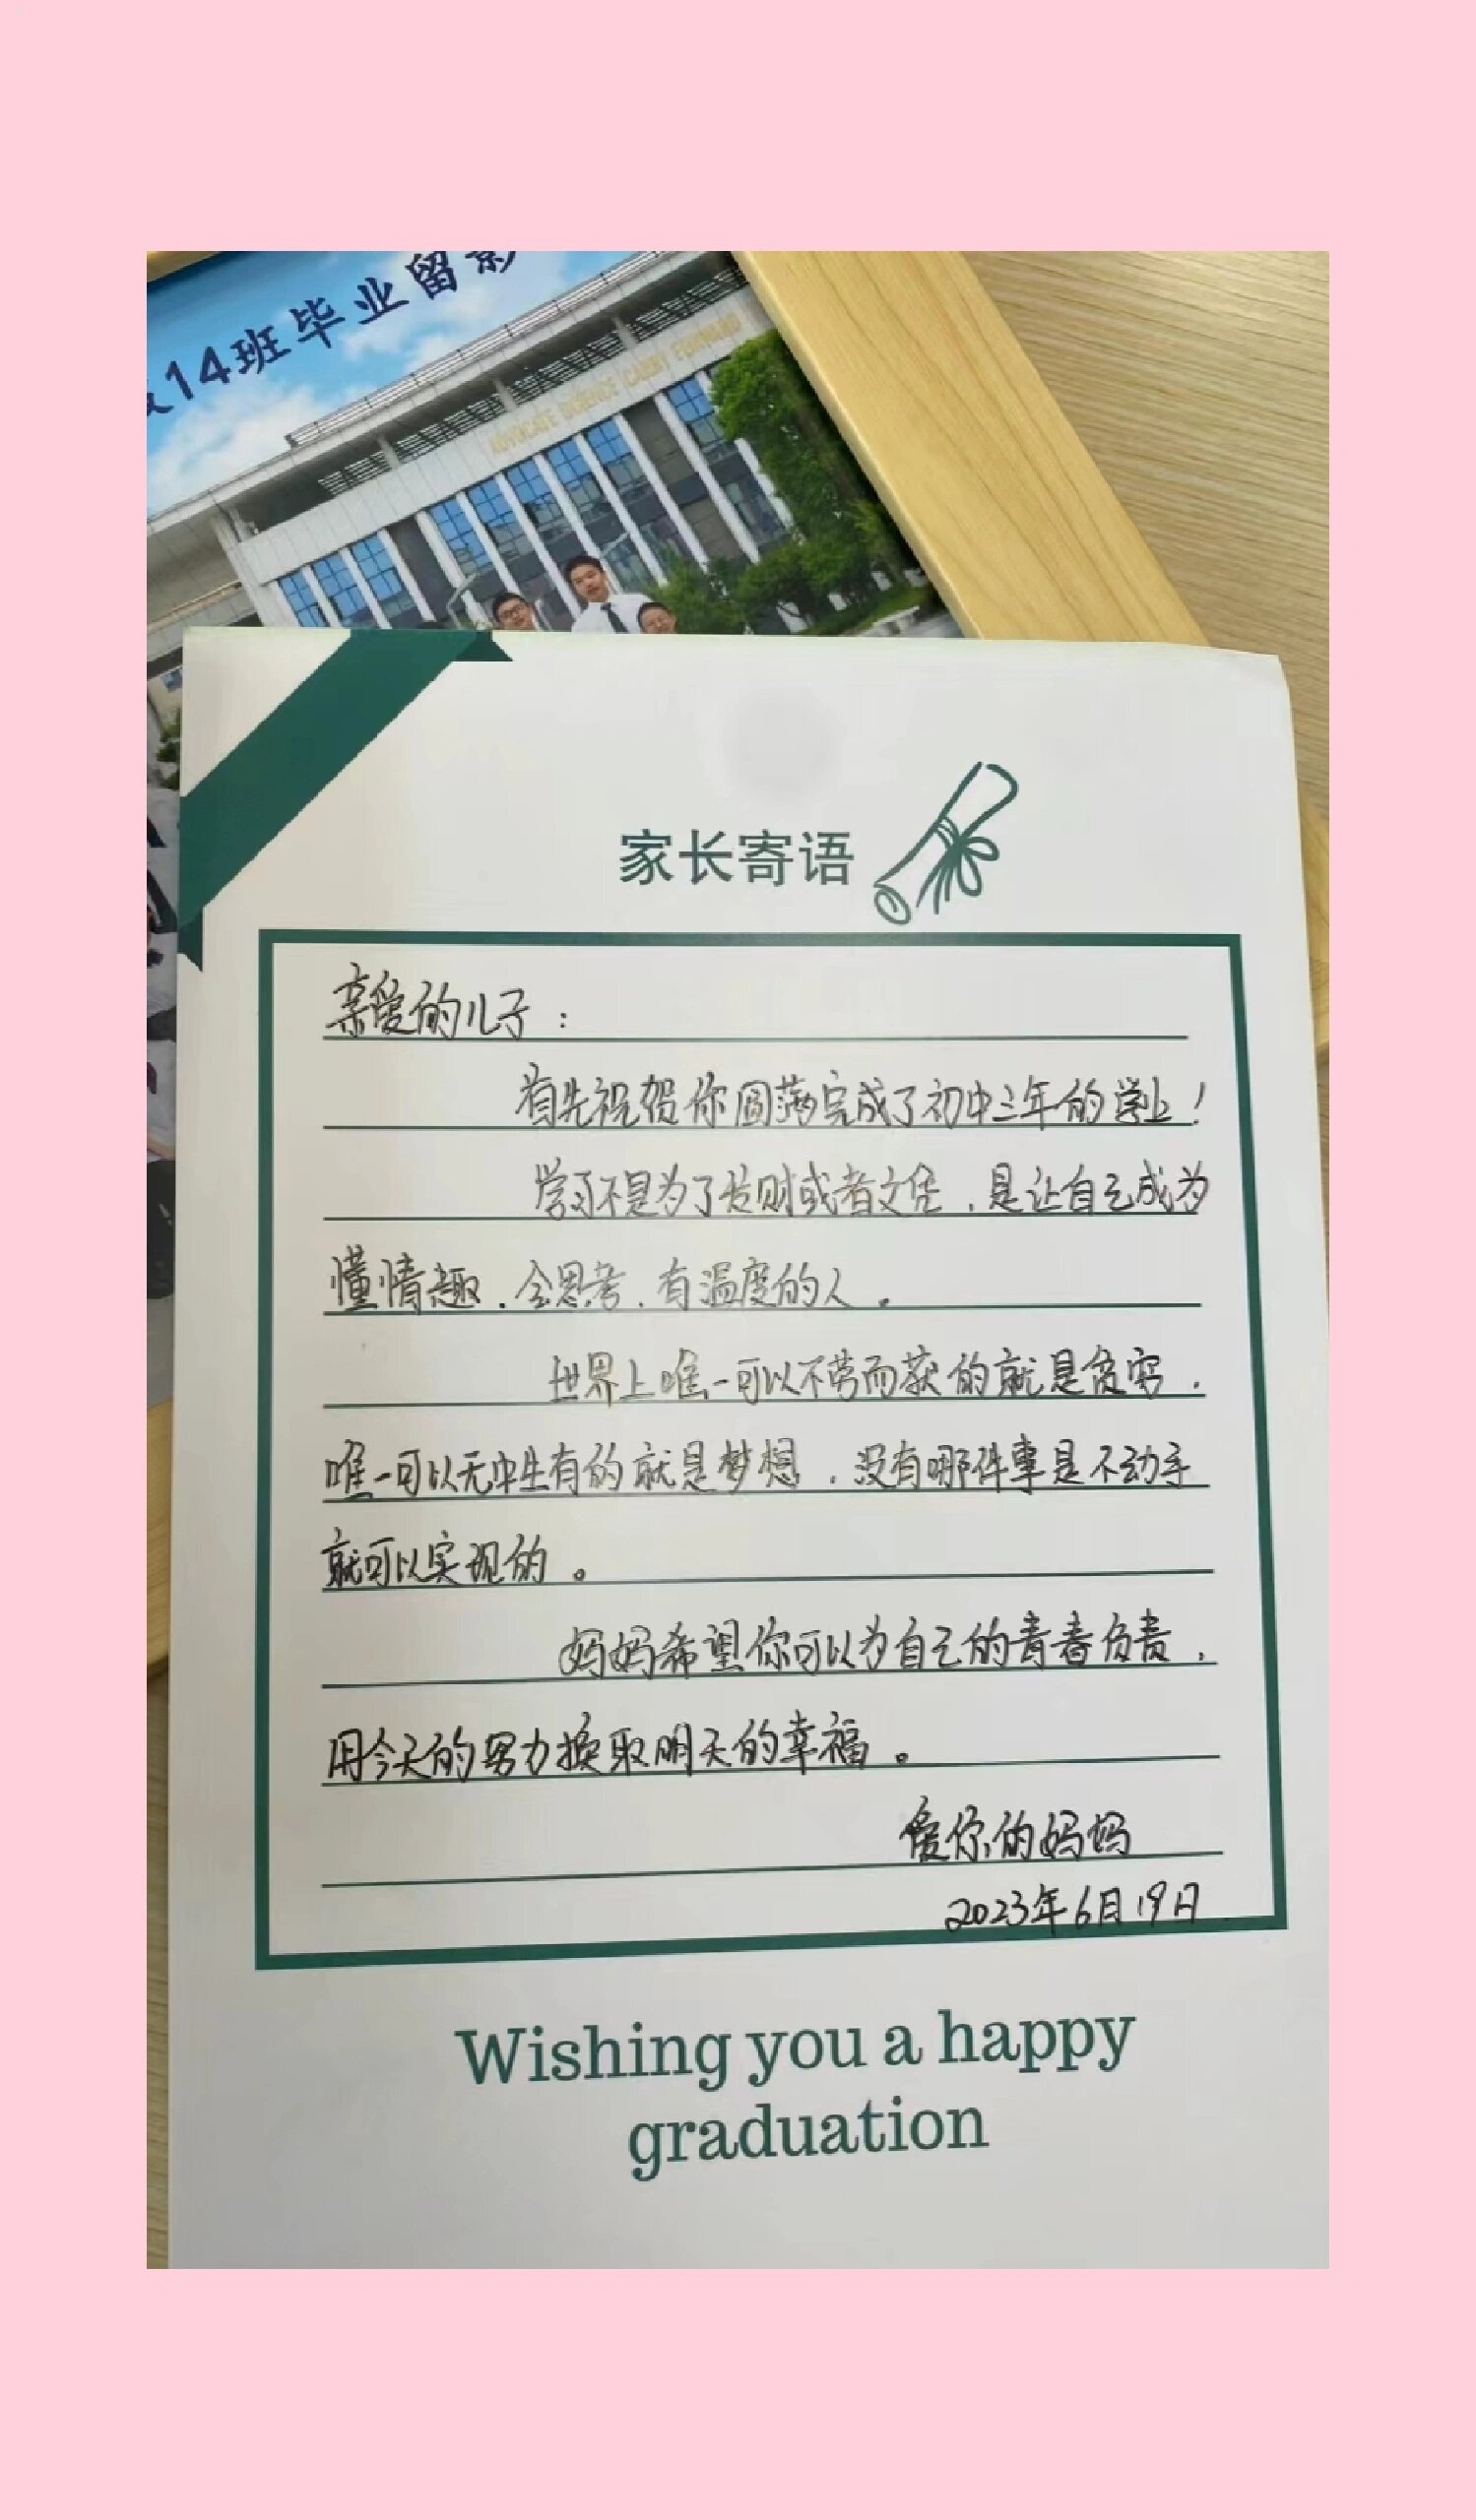 14班毕业留影
ADVOCATE SCIENCE CARRY FORWARD
家长寄语
亲爱的儿子：
首先祝贺你圆满完成了初中三年的学业！
学习不是为了发财或者文凭，是让自己成为
懂情趣、会思考、有温度的人。
世界上唯一可以不劳而获的就是贫穷，
唯一可以无中生有的就是梦想，没有哪件事是不动手
就可以实现的。
妈妈希望你可以为自己的青春负责，
用今天的努力换取明天的幸福。
爱你的妈妈
2023年6月19日
Wishing you a happy
graduation